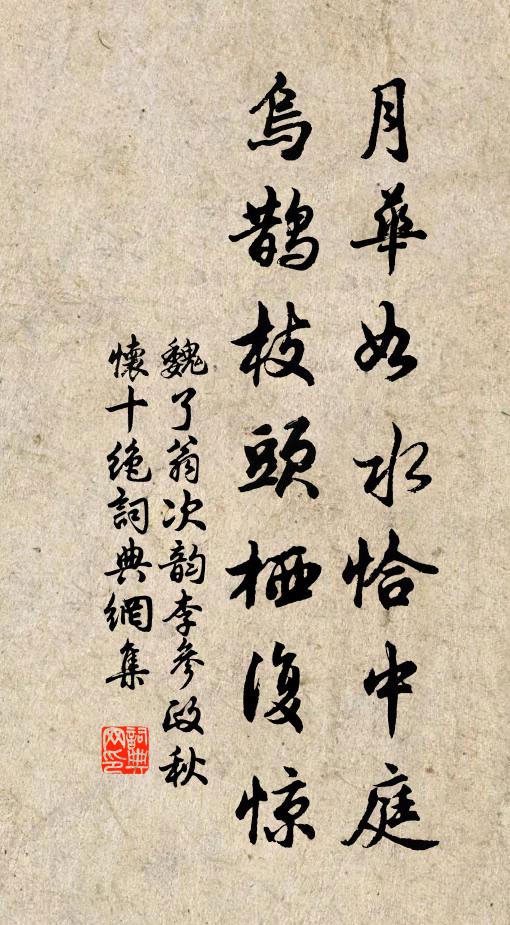 月華如水恰中庭
烏鵲枝頭栖復惊
魏了翁次韵李參政秋
懷十絶詞典網集
詞典網印